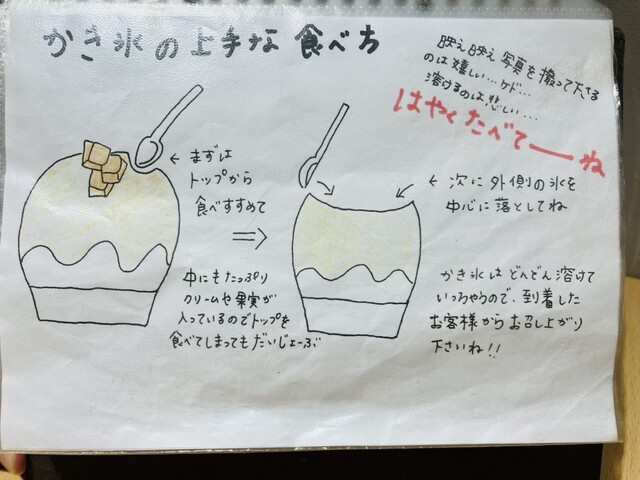 かき氷の上手な食べち
映え映え写真を撮って下さる
のは嬉しい…ケド…
溶けるのは悲しい…
はやくたべてーね
← まずは
トップから
食べすすめて
⇒
中にもたっぷり
クリームや果実が
入っているのでトップを
食べてしまってもだいじょーぶ
← 次に外側の氷を
中心に落としてね
かき氷はどんどん溶けて
いっちゃうので、到着した
お客様からお召し上がり
下さいね!!